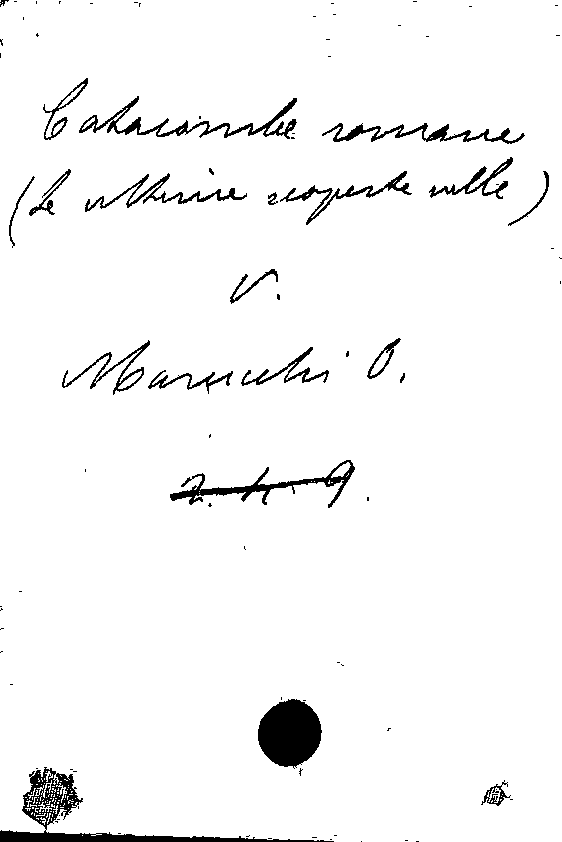 Catacombe romane
(Le ultime scoperte nelle)
V.
Marucchi O.
2. h. 9.